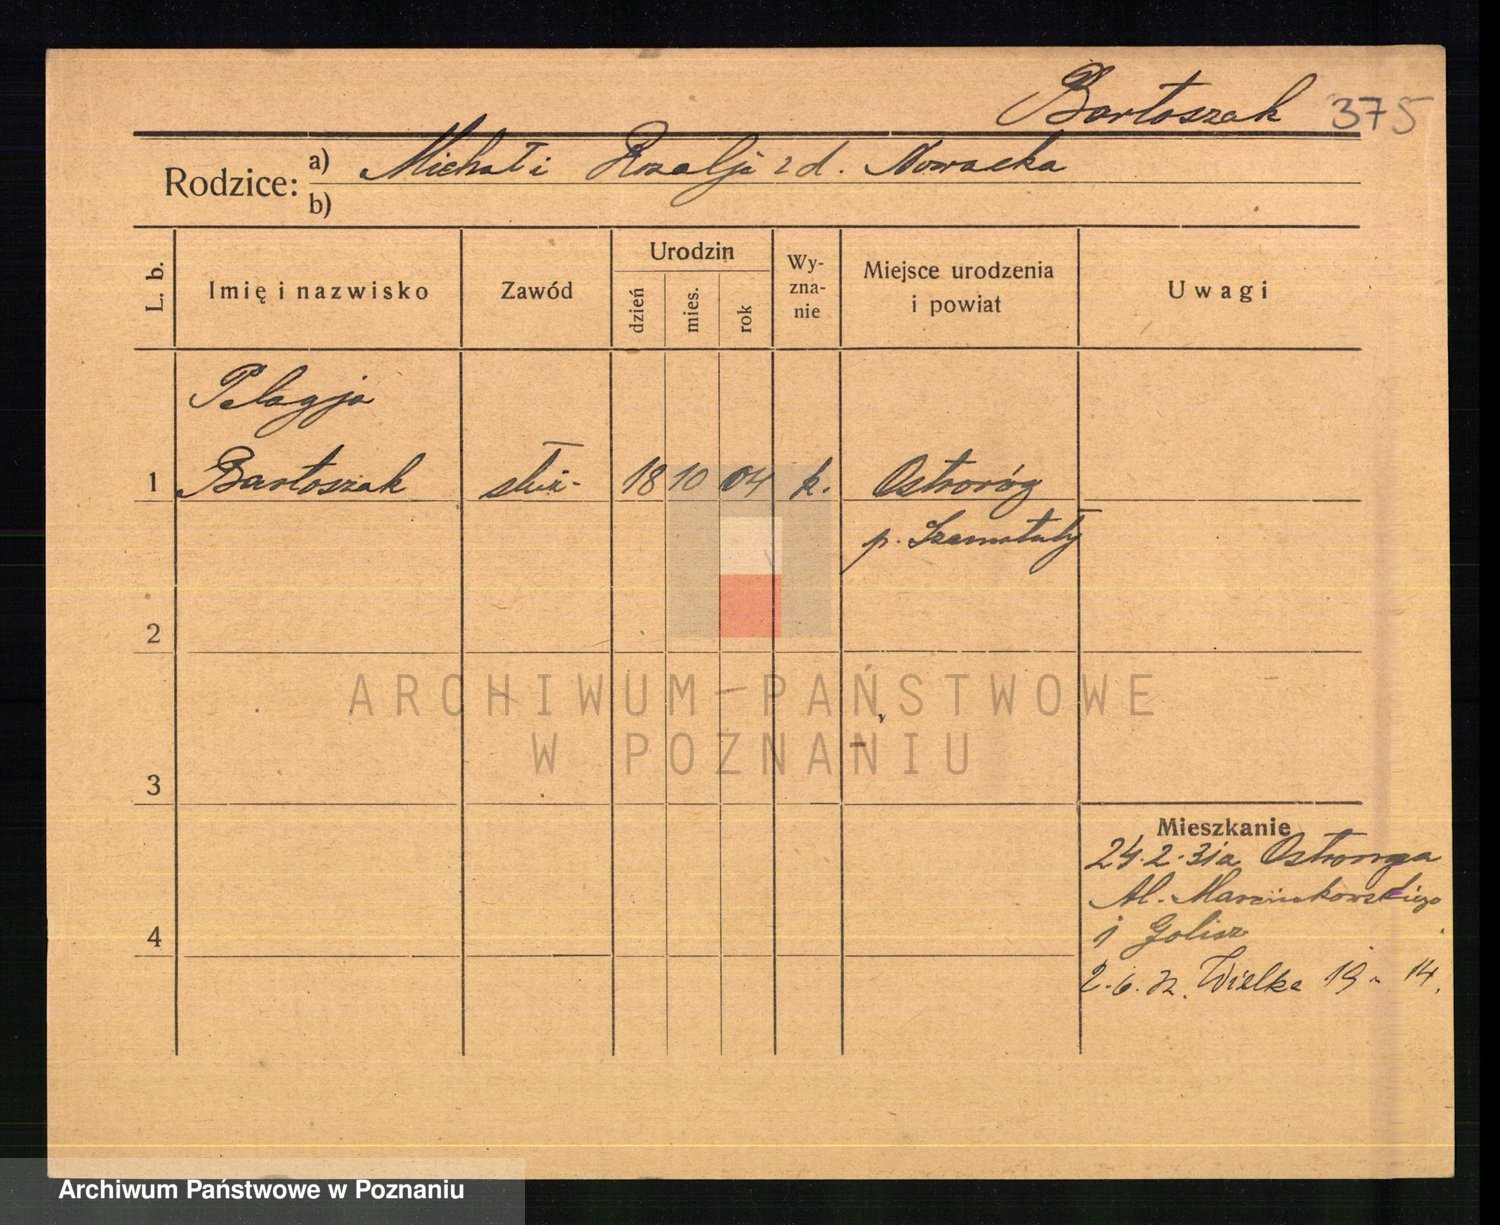 Bartoszak 375
Rodzice: a) Michał i Rozalja z d. Nowacka
b)
L. b.
Imię i nazwisko
Zawód
Urodzin
dzień
mies.
rok
Wy-
zna-
nie
Miejsce urodzenia
i powiat
Uwagi
Pelagja
1 Bartoszak służ. 18 10 04 k. Ostroróg
p. Szamotuły
2
ARCHIWUM PAŃSTWOWE
W POZNANIU
3
Mieszkanie
24.2.31 a Ostroroga
Al. Marcinkowskiego
Golisz
4
2.6.32. Wielka 19 14.
Archiwum Państwowe w Poznaniu